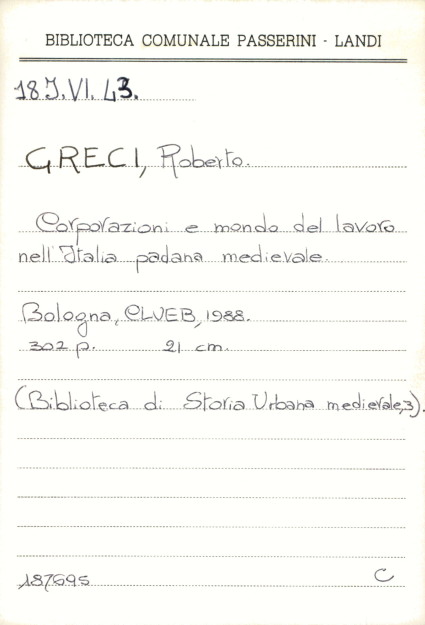 BIBLIOTECA COMUNALE PASSERINI - LANDI
18 J.VI. 43.
GRECI, Roberto.
Corporazioni e mondo del lavoro
nell'Italia padana medievale.
Bologna, CLUEB, 1988.
302 p. 21 cm.
(Biblioteca di Storia Urbana medievale, 3).
187695 C